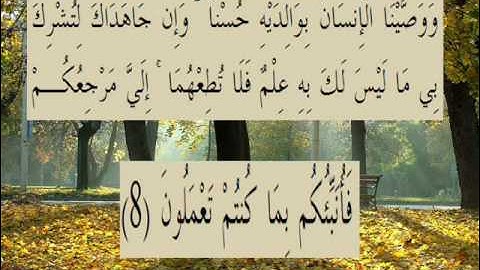 وَوَصَّيْنَا الْإِنسَانَ بِوَالِدَيْهِ حُسْنًا ۖ وَإِن جَاهَدَاكَ لِتُشْرِكَ
بِي مَا لَيْسَ لَكَ بِهِ عِلْمٌ فَلَا تُطِعْهُمَا ۚ إِلَيَّ مَرْجِعُكُـــمْ
فَأُنَبِّئُكُم بِمَا كُنتُمْ تَعْمَلُونَ (8)